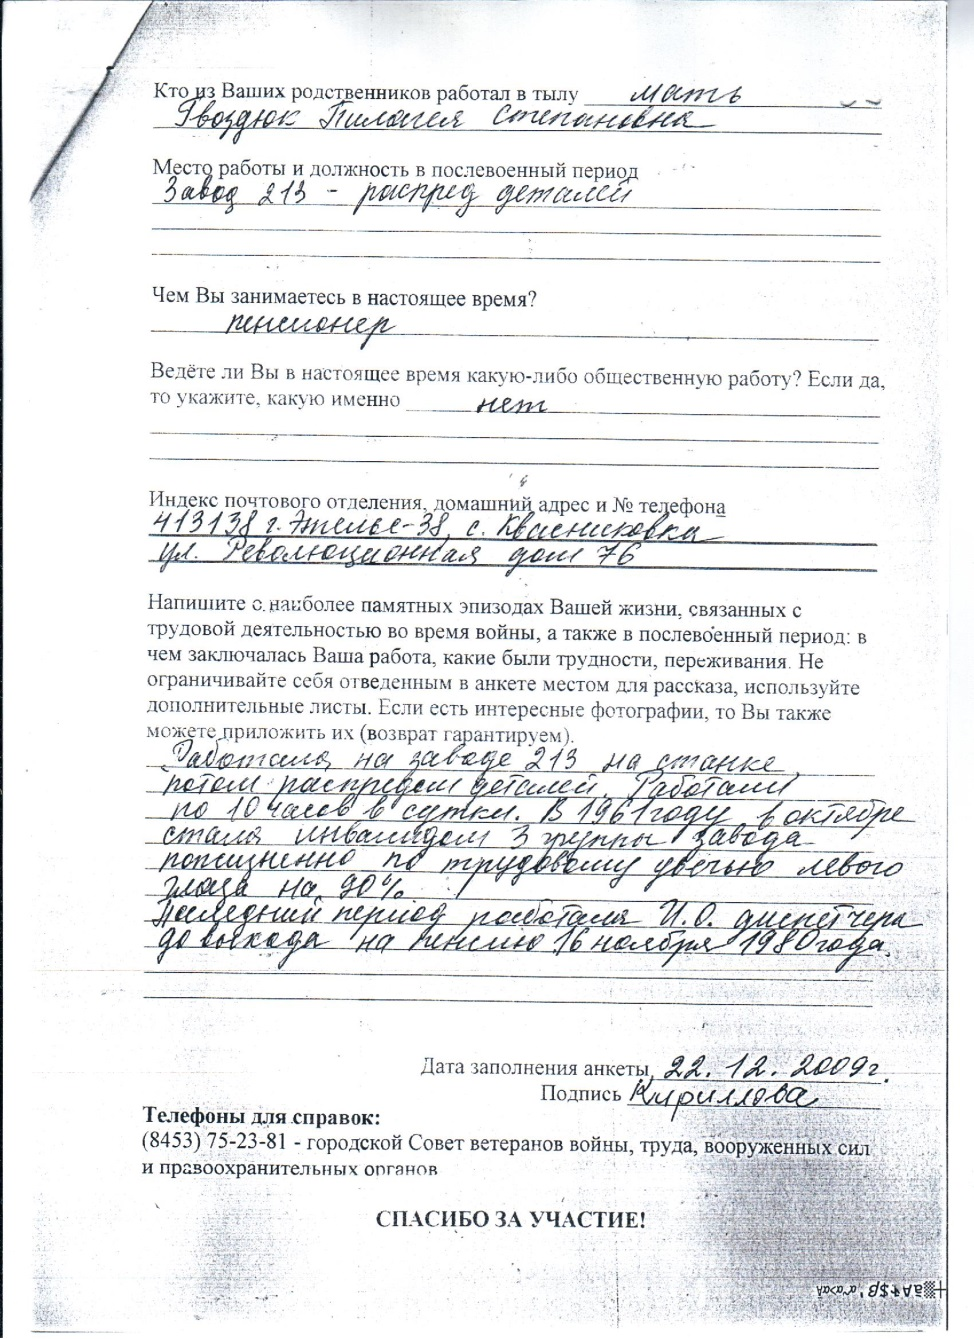 Кто из Ваших родственников работал в тылу мать
Гвоздюк Пилагея Степановна
Место работы и должность в послевоенный период
Завод 213 - распред деталей
Чем Вы занимаетесь в настоящее время?
пенсионер
Ведёте ли Вы в настоящее время какую-либо общественную работу? Если да,
то укажите, какую именно нет
Индекс почтового отделения, домашний адрес и № телефона
413138 г. Энгельс-38, с. Квасниковка
ул. Революционная дом 76
Напишите о наиболее памятных эпизодах Вашей жизни, связанных с
трудовой деятельностью во время войны, а также в послевоенный период: в
чем заключалась Ваша работа, какие были трудности, переживания. Не
ограничивайте себя отведенным в анкете местом для рассказа, используйте
дополнительные листы. Если есть интересные фотографии, то Вы также
можете приложить их (возврат гарантируем).
Работала на заводе 213 на станке
потом деталей. Работали
по 10 часов в сутки. В 1961 году в октябре
стала инвалидом 3 группы завода
пожизненно по трудовому увечью левого
глаза на 90%
Последний период работала И.О. диспетчера
до выхода на пенсию 16 ноября 1980 года.
Дата заполнения анкеты 22.12.2009г.
Подпись Кириллова
Телефоны для справок:
(8453) 75-23-81 - городской Совет ветеранов войны, труда, вооруженных сил
и правоохранительных органов
СПАСИБО ЗА УЧАСТИЕ!